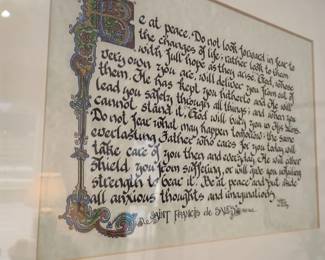 Be at peace. Do not look forward in fear to
the changes of life; rather look to them
with full hope as they arise. God, whose
very own you are, will deliver you from out of
them. He has kept you hitherto and He will
lead you safely through all things; and when you
cannot stand it, God will bury you in His arms.
Do not fear what may happen tomorrow; the same
everlasting Father who cares for you today will
take care of you then and everyday. He will either
shield you from suffering, or will give you unfailing
strength to bear it. Be at peace and put aside
all anxious thoughts and imaginations.
SAINT FRANCIS de SALES